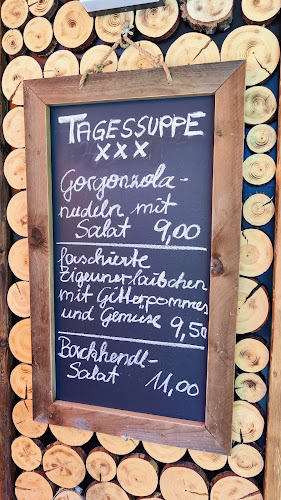 TAGESSUPPE
xxx
Gorgonzola-
nudeln mit
Salat 9,00
faschierte
Zigeunerlaibchen
mit Gitterpommes
und Gemüse 9,50
Backhendl-
Salat 11,00